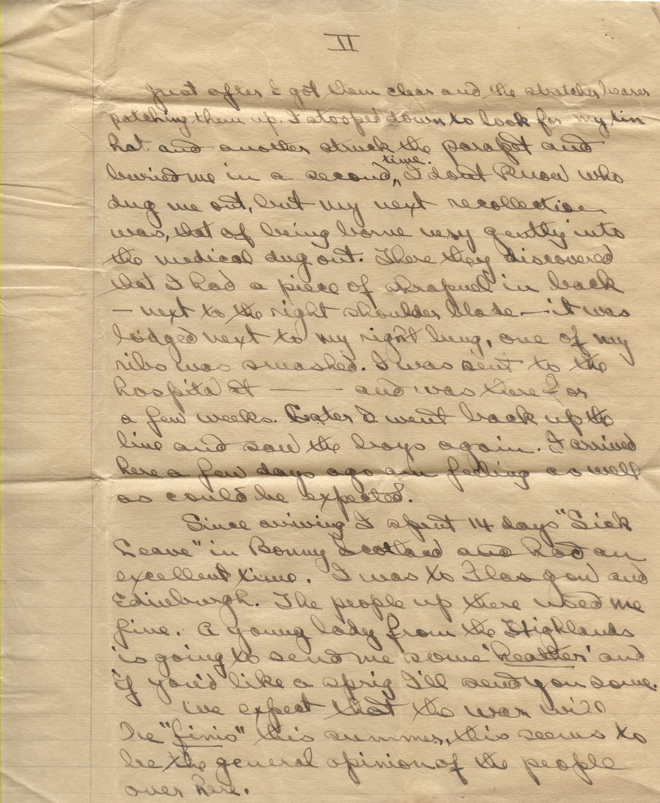 II
Just after I got them clear and the stretcher bearer
patching them up. I stooped down to look for my tin
hat and another struck the parapet and
time.
buried me in a second, I dont know who
dug me out, but my next recollection
was, that of being borne very gently into
the medical dug out. There they discovered
that I had a piece of shrapnel in back
— next to the right shoulder blade — it was
lodged next to my right lung, one of my
ribs was smashed. I was sent to the
hospital at ——— and was there for
a few weeks. Later I went back up the
line and saw the boys again. I arrived
here a few days ago am feeling as well
as could be expected.
Since arriving I spent 14 days "Sick
Leave" in Bonny Scotland and had an
excellent time. I was to Glasgow and
Edinburgh. The people up there used me
fine. A young lady from the Highlands
is going to send me some 'heather' and
if you'd like a sprig I'll send you some.
We expect that the war will
be "finis" this summer, this seems to
be the general opinion of the people
over here.